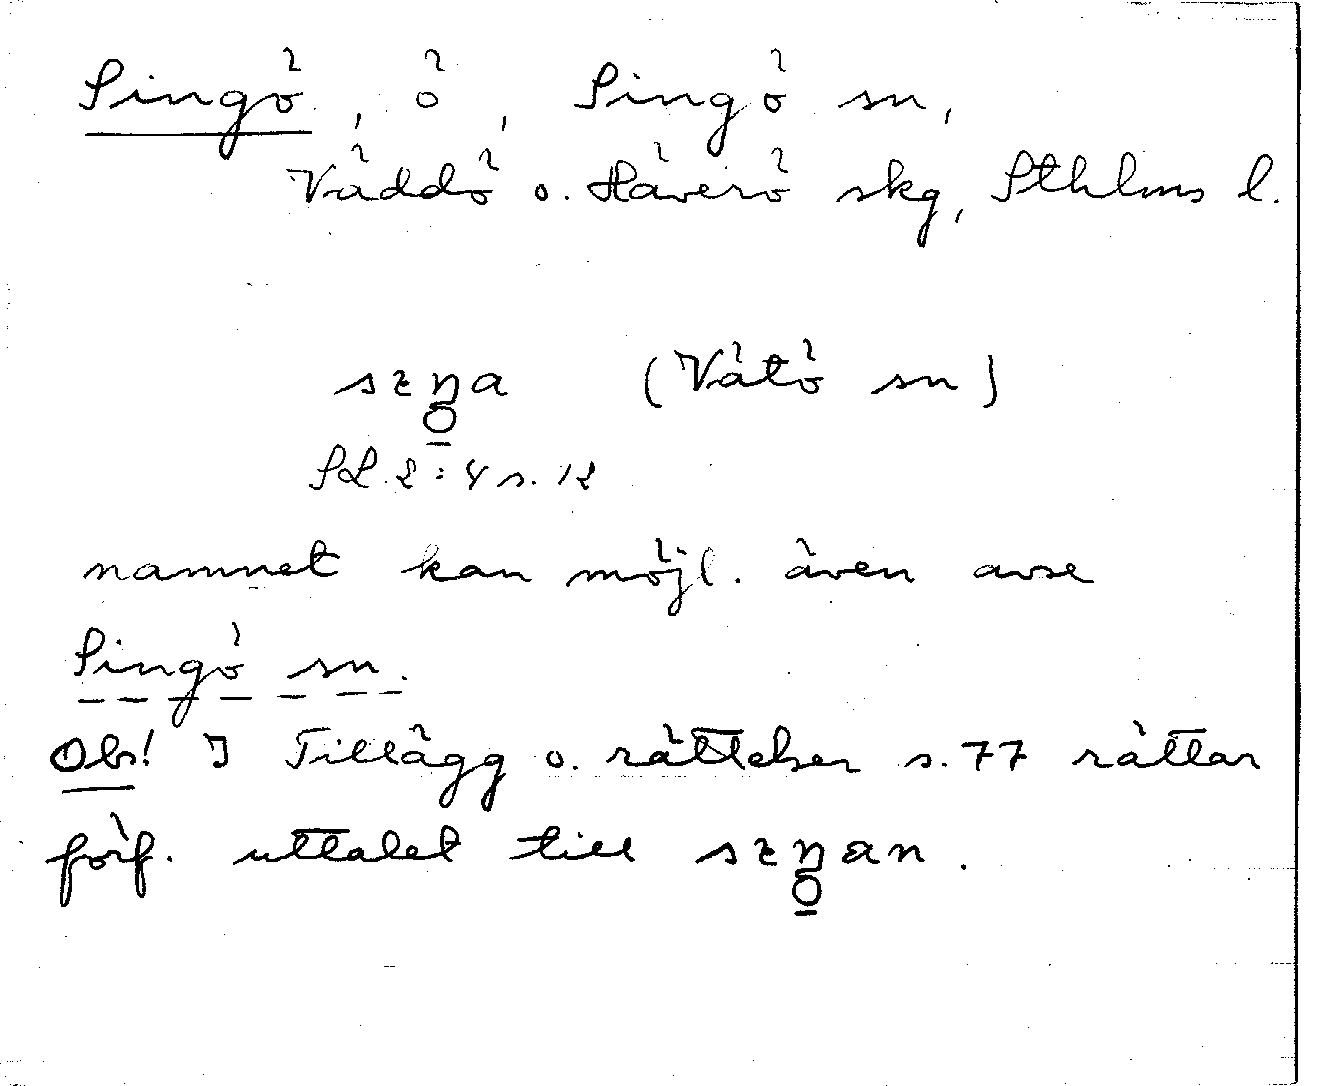 Singö, ö, Singö sn,
Väddö o. Häverö skg, Sthlms l.
sɩŋa (Vätö sn)
SL 2:4 s. 12
namnet kan möjl. även avse
Singö sn.
Obs! I Tillägg o. rättelser s. 77 rättar
förf. uttalet till sɩŋan.